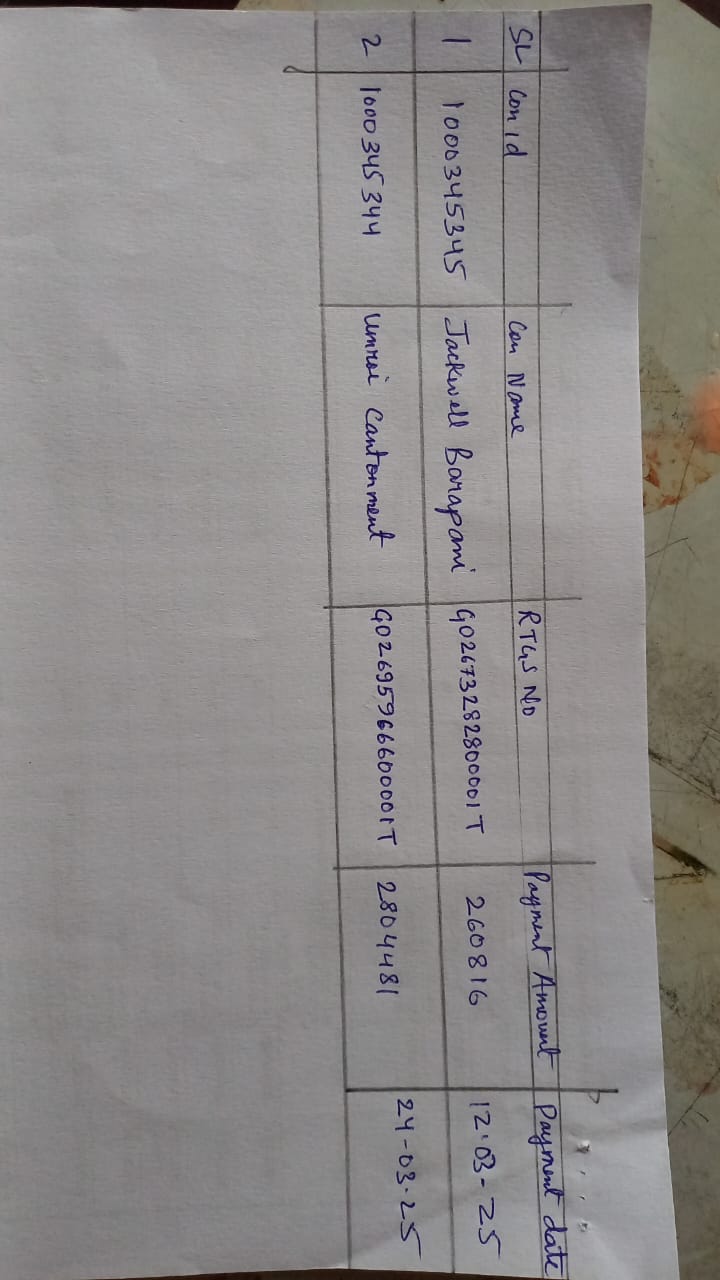 SL Con id Con Name RTGS No Payment Amount Payment date
1 1000345345 Jackwell Barapani G02673282800001T 260816 12.03-25
2 1000345344 Umroi Cantonment G02695966600001T 2804481 24-03.25